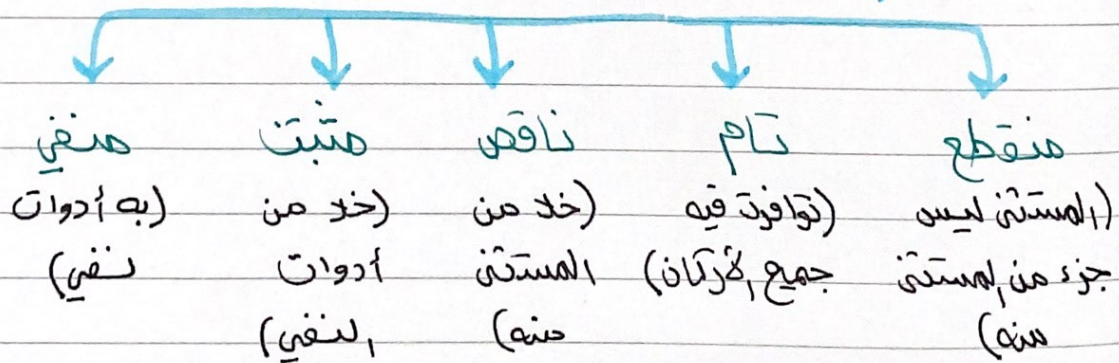 منقطع
(المستثنى ليس
جزء من المستثنى
منه)
تام
(توافرت فيه
جميع الأركان)
ناقص
(خلا من
المستثنى
منه)
مثبت
(خلا من
أدوات
النفي)
منفي
(به أدوات
نفي)